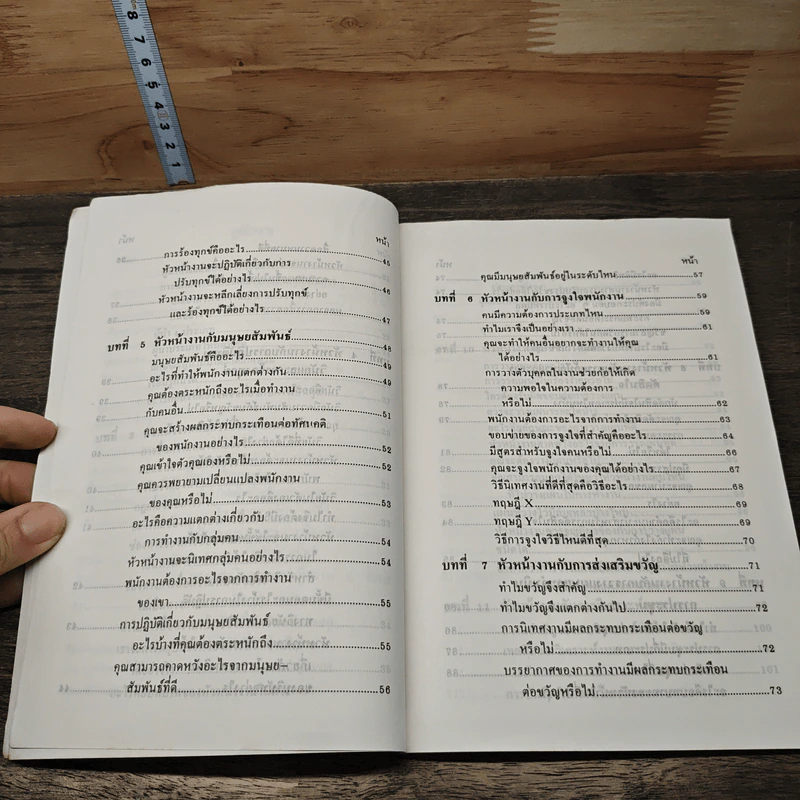 8
7
6
5
4
3
2
1
หน้า
การร้องทุกข์คืออะไร..........45
หัวหน้างานจะปฏิบัติเกี่ยวกับการ
ปรับทุกข์ได้อย่างไร..........46
หัวหน้างานจะหลีกเลี่ยงการปรับทุกข์
และร้องทุกข์ได้อย่างไร..........47
บทที่ 5 หัวหน้างานกับมนุษยสัมพันธ์..........48
มนุษยสัมพันธ์คืออะไร..........49
อะไรที่ทำให้พนักงานแตกต่างกัน..........49
คุณต้องตระหนักถึงอะไรเมื่อทำงาน
กับคนอื่น..........51
คุณจะสร้างผลกระทบกระเทือนต่อทัศนคติ
ของพนักงานอย่างไร..........52
คุณเข้าใจตัวคุณเองหรือไม่..........52
คุณควรพยายามเปลี่ยนแปลงพนักงาน
ของคุณหรือไม่..........53
อะไรคือความแตกต่างเกี่ยวกับ
การทำงานกับกลุ่มคน..........54
หัวหน้างานจะนิเทศกลุ่มคนอย่างไร..........54
พนักงานต้องการอะไรจากการทำงาน
ของเขา..........55
การปฏิบัติเกี่ยวกับมนุษยสัมพันธ์
อะไรบ้างที่คุณต้องตระหนักถึง..........55
คุณสามารถคาดหวังอะไรจากมนุษย-
สัมพันธ์ที่ดี..........56
หน้า
คุณมีมนุษยสัมพันธ์อยู่ในระดับไหน..........57
บทที่ 6 หัวหน้างานกับการจูงใจพนักงาน..........59
คนมีความต้องการประเภทไหน..........59
ทำไมเราจึงเป็นอย่างเรา..........61
คุณจะทำให้คนอื่นอยากจะทำงานให้คุณ
ได้อย่างไร..........61
การวางตัวบุคคลในงานช่วยก่อให้เกิด
ความพอใจในความต้องการ
หรือไม่..........62
พนักงานต้องการอะไรจากการทำงาน..........63
ขอบข่ายของการจูงใจที่สำคัญคืออะไร..........64
มีสูตรสำหรับจูงใจคนหรือไม่..........66
คุณจะจูงใจพนักงานของคุณได้อย่างไร..........67
วิธีนิเทศงานที่ดีที่สุดคือวิธีอะไร..........68
ทฤษฎี X..........69
ทฤษฎี Y..........69
วิธีการจูงใจวิธีไหนดีที่สุด..........70
บทที่ 7 หัวหน้างานกับการส่งเสริมขวัญ..........71
ทำไมขวัญจึงสำคัญ..........71
ทำไมขวัญจึงแตกต่างกันไป..........72
การนิเทศงานมีผลกระทบกระเทือนต่อขวัญ
หรือไม่..........72
บรรยากาศของการทำงานมีผลกระทบกระเทือน
ต่อขวัญหรือไม่..........73